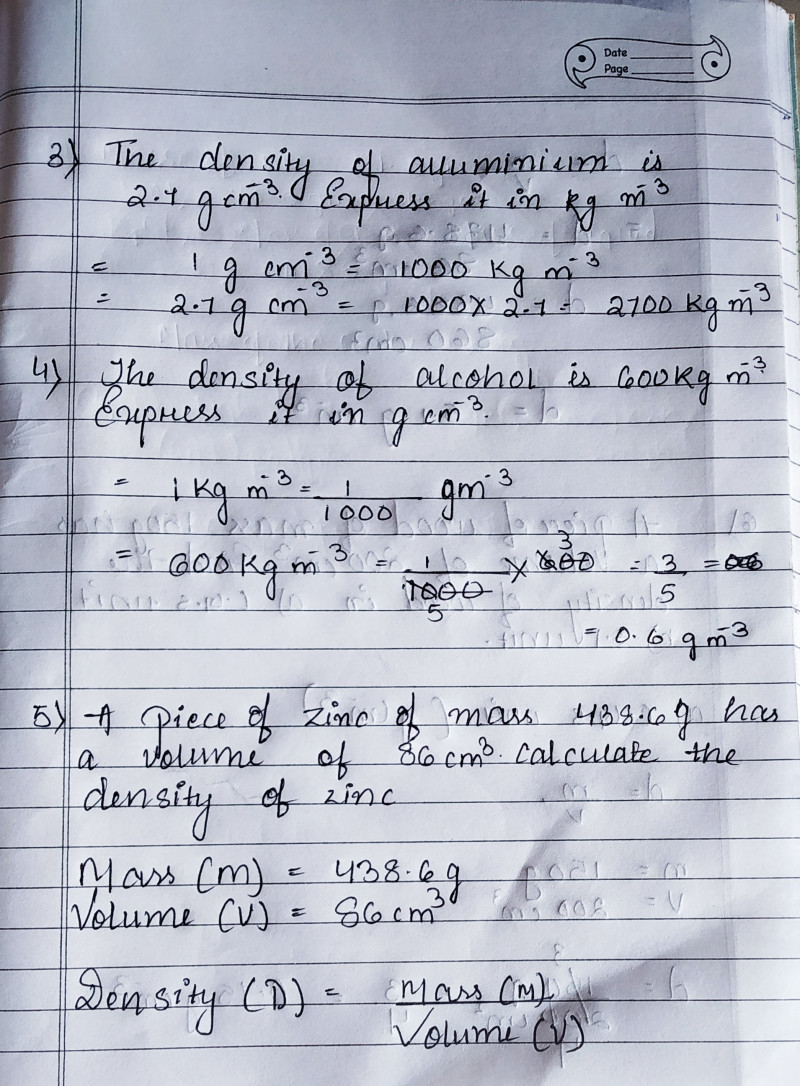 Date
Page
3) The density of alluminium is
2.7 g cm⁻³. Express it in kg m⁻³
= 1 g cm⁻³ = 1000 Kg m⁻³
= 2.7 g cm⁻³ = 1000 x 2.7 = 2700 Kg m⁻³
4) The density of alcohol is 600 Kg m⁻³.
Express it in g cm⁻³.
= 1 Kg m⁻³ = 1/1000 gm⁻³
= 600 Kg m⁻³ = 1/1000 x 600 = 3/5
3
5
= 0.6 gm⁻³
5) A piece of zinc of mass 438.6g has
a volume of 86 cm³. Calculate the
density of zinc
Mass (m) = 438.6 g
Volume (V) = 86 cm³
Density (D) = Mass (M)
Volume (V)